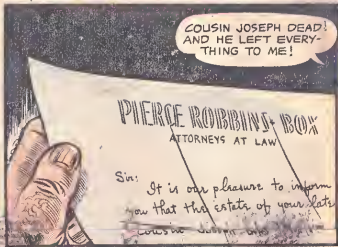 COUSIN JOSEPH DEAD!
AND HE LEFT EVERY-
THING TO ME!
PIERCE ROBBINS BOX
ATTORNEYS AT LAW
Sir:
It is our pleasure to inform
you that the estate of your late
cousin Joseph